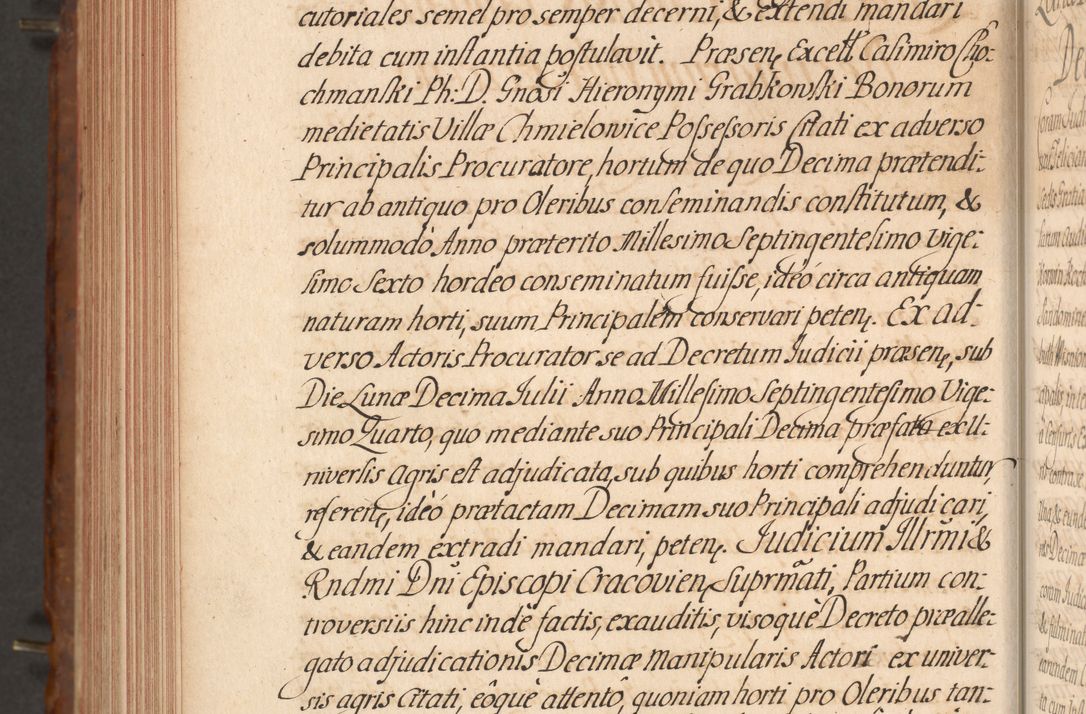 cutoriales semel pro semper decerni, & extendi mandari
debita cum instantia postulavit. Præsenę Excell Casimiro Cho-
chmanski Ph: D. Gnosi Hieronymi Grabkowski Bonorum
medietatis Villæ Chmielowice Possessoris Citati ex adverso
Principalis Procuratore, hortum de quo Decima prætendi-
tur ab antiquo pro Oleribus conseminandis constitutum, &
solummodò Anno præterito Millesimo Septingentesimo Vige-
simo Sexto hordeo conseminatum fuisse, ideó circa antiquam
naturam horti, suum Principalem conservari petenę. Ex ad-
verso Actoris Procurator se ad Decretum Judicii præsenę, sub
Die Lunæ Decima Julii Anno Millesimo Septingentesimo Vige-
simo Quarto, quo mediante suo Principali Decima præfata ex U-
niversis agris est adjudicata, sub quibus horti comprehenduntur,
referenę, ideó prætactam Decimam suo Principali adjudicari,
& eandem extradi mandari, petenę. Judicium Illrmi &
Rndmi Dni Episcopi Cracovienę Suprmati, Partium con-
troversiis hinc inde factis, exauditis, visoque Decreto præalle-
gato adjudicationis Decimæ Manipularis Actori ex univer-
sis agris Citati, eôque attentô, quoniam horti pro Oleribus tan-